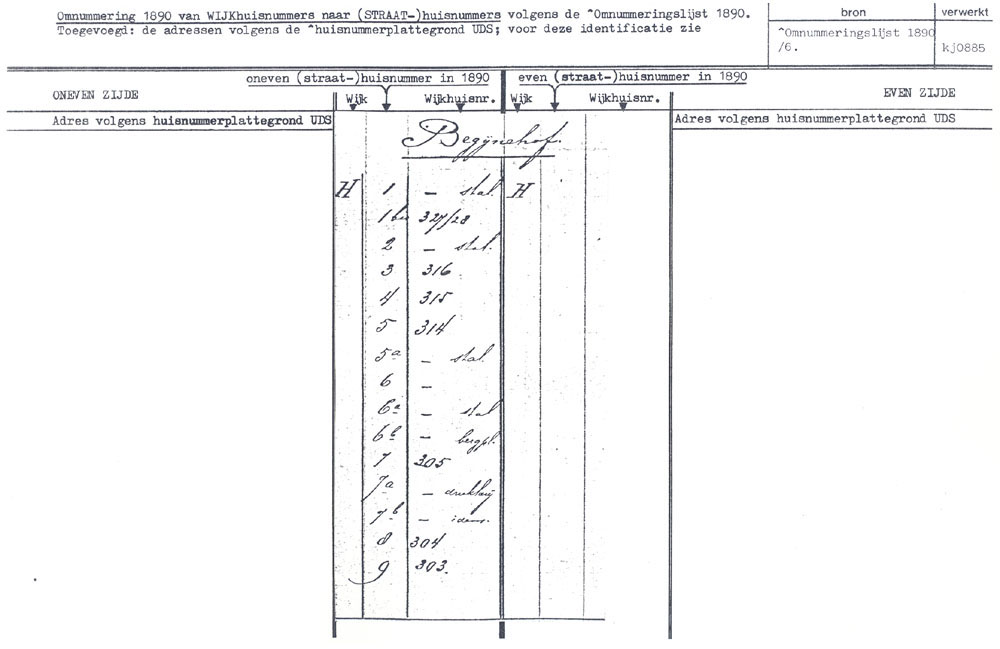 Omnummering 1890 van WIJKhuisnummers naar (STRAAT-)huisnummers volgens de ^Omnummeringslijst 1890.
Toegevoegd: de adressen volgens de ^huisnummerplattegrond UDS; voor deze identificatie zie
bron
verwerkt
^Omnummeringslijst 1890
/6.
kj0885
oneven (straat-)huisnummer in 1890
even (straat-)huisnummer in 1890
ONEVEN ZIJDE
Wijk
Wijkhuisnr.
Wijk
Wijkhuisnr.
EVEN ZIJDE
Adres volgens huisnummerplattegrond UDS
Adres volgens huisnummerplattegrond UDS
Begijnehof.
H 1 – stal H
1 bis 327/28
2 – stal.
3 316
4 315
5 314
5a – stal
6 –
6a – stal
6b – bergpl.
7 305
7a – drukkerij
7b – idem.
8 304
9 303.